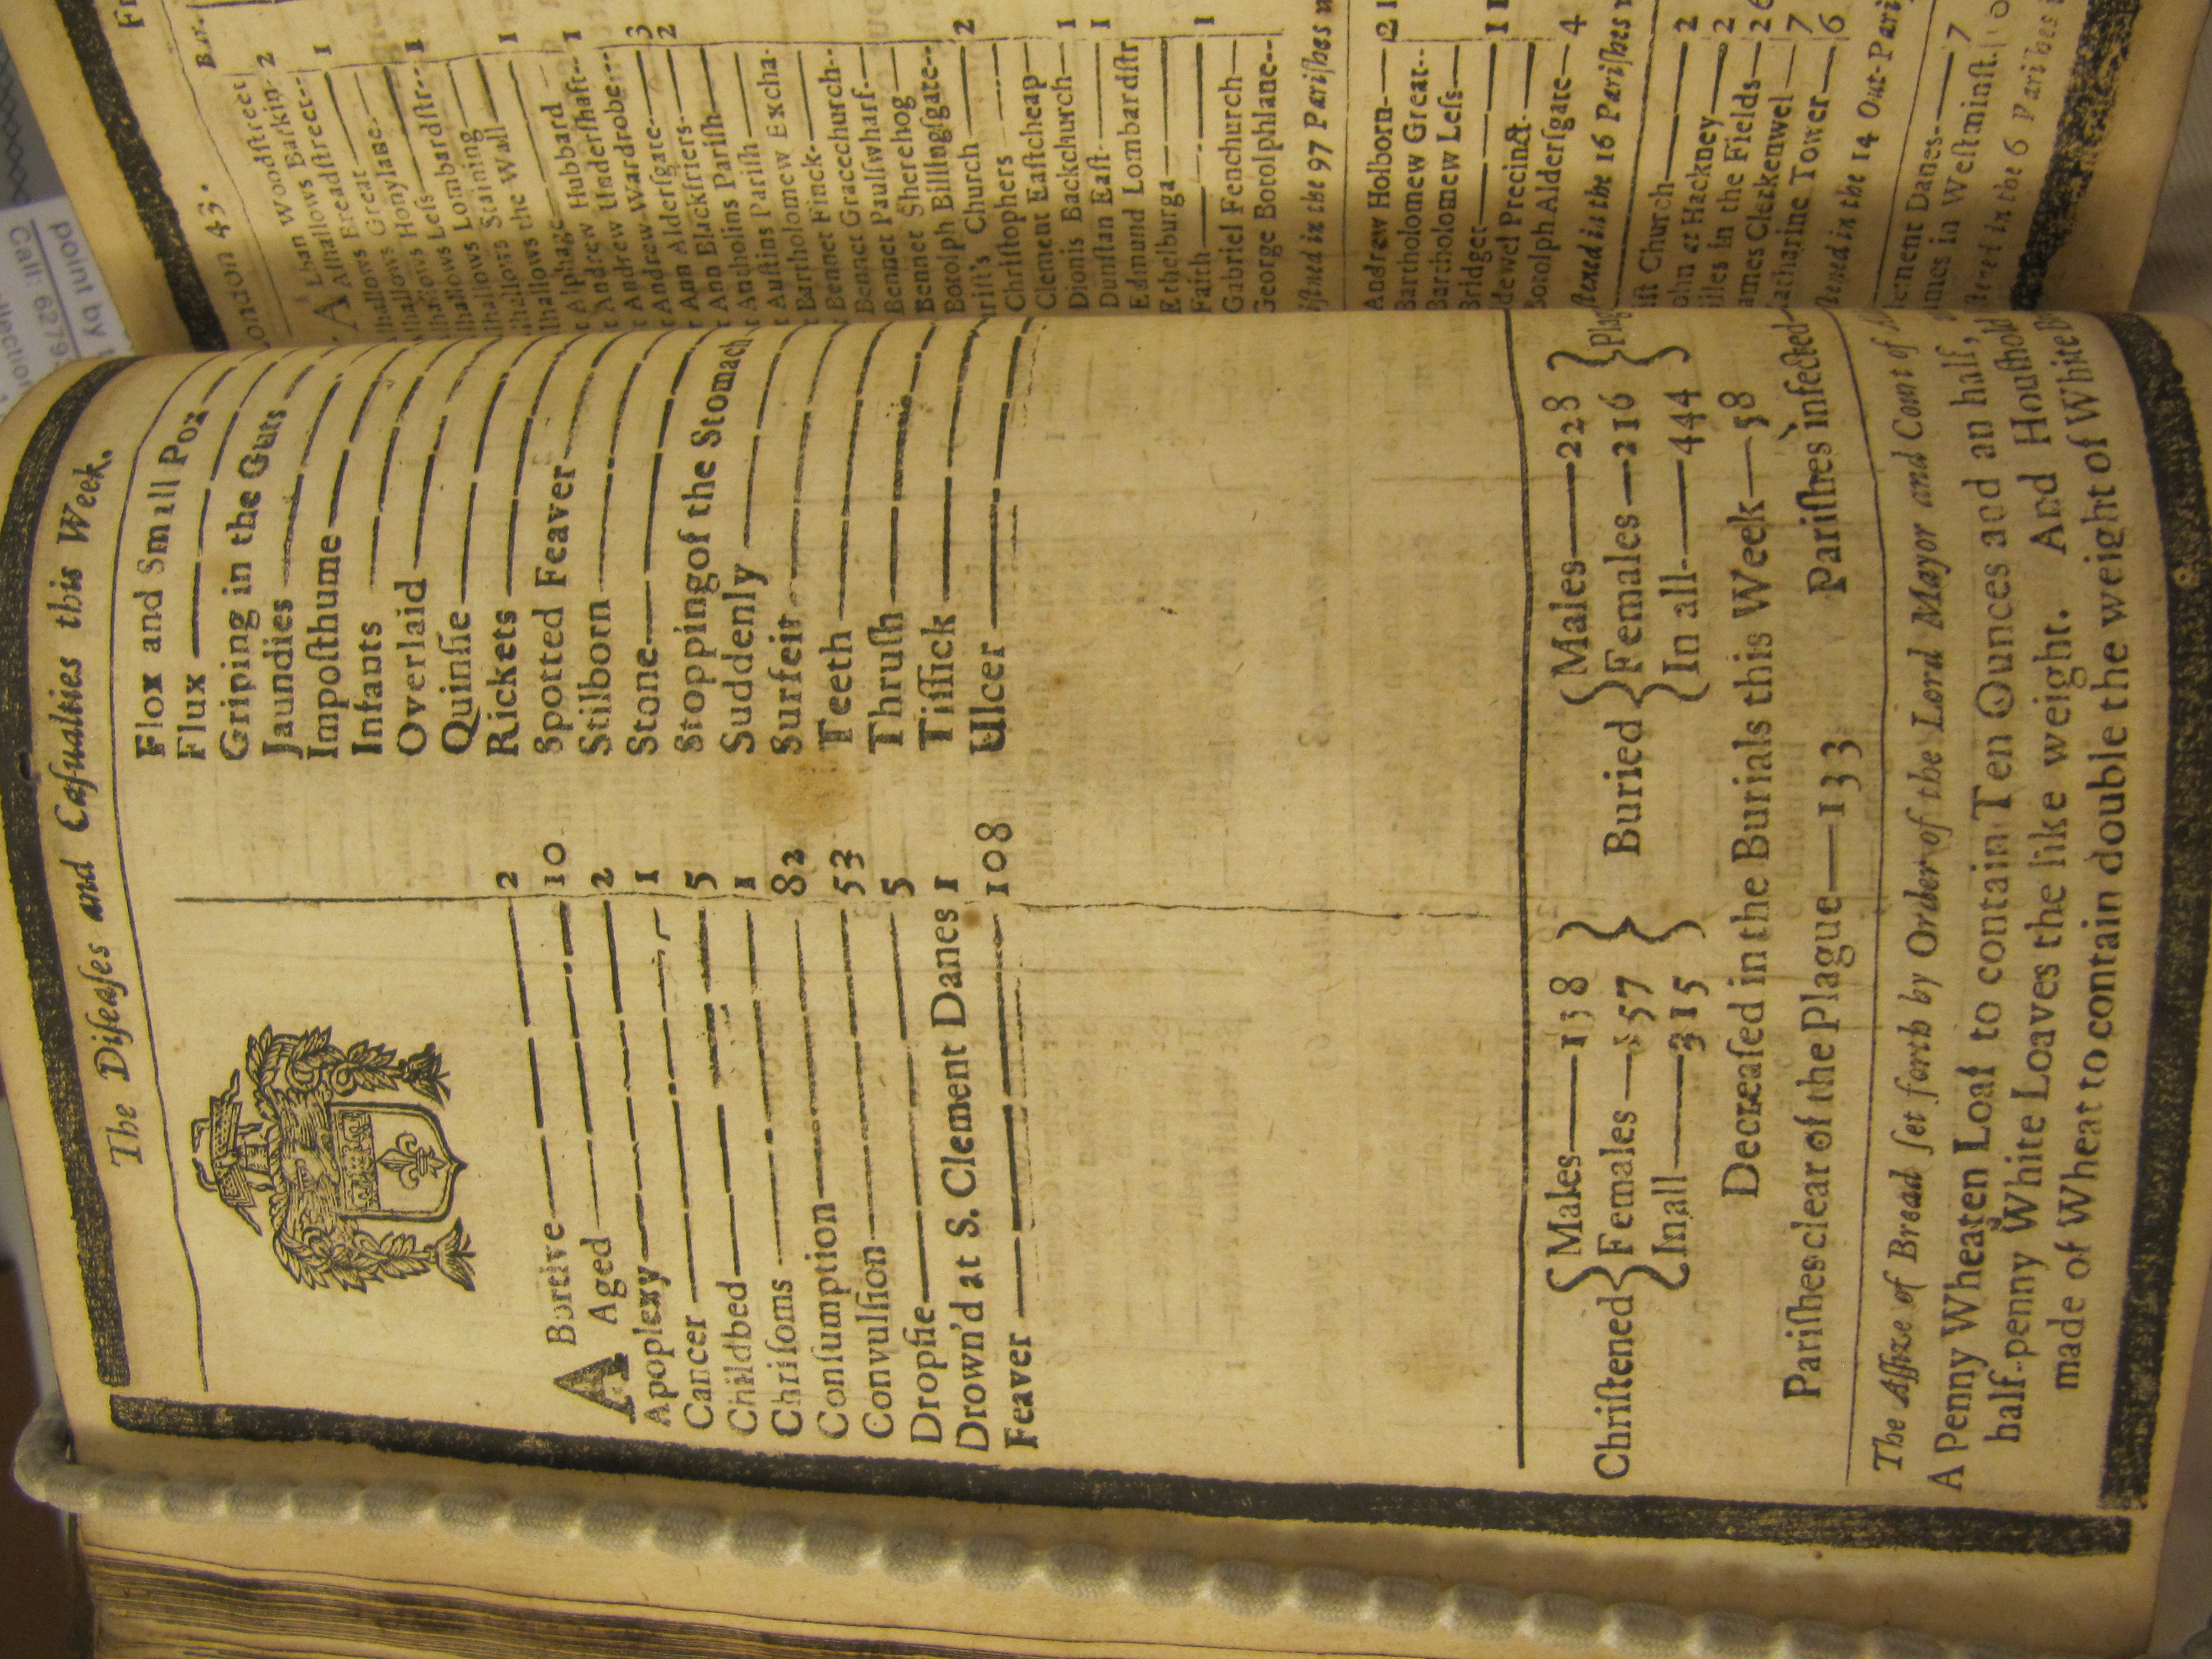 The Diſeaſes and Caſualties this Week.
ABortive 2
Aged 10
Apoplexy 2
Cancer 1
Childbed 5
Chriſoms 1
Conſumption 82
Convulſion 53
Dropſie 5
Drown'd at S. Clement Danes 1
Feaver 108
Flox and Small Pox
Flux
Griping in the Guts
Jaundies
Impoſthume
Infants
Overlaid
Quinſie
Rickets
Spotted Feaver
Stilborn
Stone
Stopping of the Stomach
Suddenly
Surfeit
Teeth
Thruſh
Tiſſick
Ulcer
Chriſtened { Males—158 Females—157 In all—315 } Buried { Males—228 Females—216 In all—444 } Plag
Decreaſed in the Burials this Week—58
Pariſhes clear of the Plague—133 Pariſhes infected
The Aſſize of Bread ſet forth by Order of the Lord Mayor and Court of
A Penny Wheaten Loaf to contain Ten Ounces and an half,
half-penny White Loaves the like weight. And Houſhold
made of Wheat to contain double the weight of White
ondon 43. Bur.
Lban Woodſtreet
Alhallows Barkin 2
Breadſtreet
hallows Great 1
hallows Honylane
hallows Leſs 1
hallows Lombardſtr 1
hallows Staining
hallows the Wall 1
Alphage
Andrew Hubbard
Andrew Underſhaft 1
Andrew Wardrobe
Ann Alderſgate 3
Ann Blackfriers 2
Antholins Pariſh
Auſtins Pariſh
Bartholomew Excha.
Bennet Finck
Bennet Gracechurch
Bennet Paulſwharf
Bennet Sherehog
Botolph Billingſgate
riſt's Church 2
Chriſtophers
Clement Eaſtcheap
Dionis Backchurch 1
Dunſtan Eaſt 1
Edmund Lombardſtr
Ethelburga
Faith 1
Gabriel Fenchurch
George Botolphlane
iſtned in the 97 Pariſhes
Andrew Holborn 21
Bartholomew Great
Bartholomew Leſs
Bridget
dewel Precinct
Botolph Alderſgate 4
ſtned in the 16 Pariſhes
iſt Church 2
ohn at Hackney 2
iles in the Fields
ames Clerkenwel 7
Catharine Tower 6
ſtened in the 14 Out-Pari
lement Danes 7
ames in Weſtminſt.
ſtened in the 6 Pariſhes
point by
Call: 6279